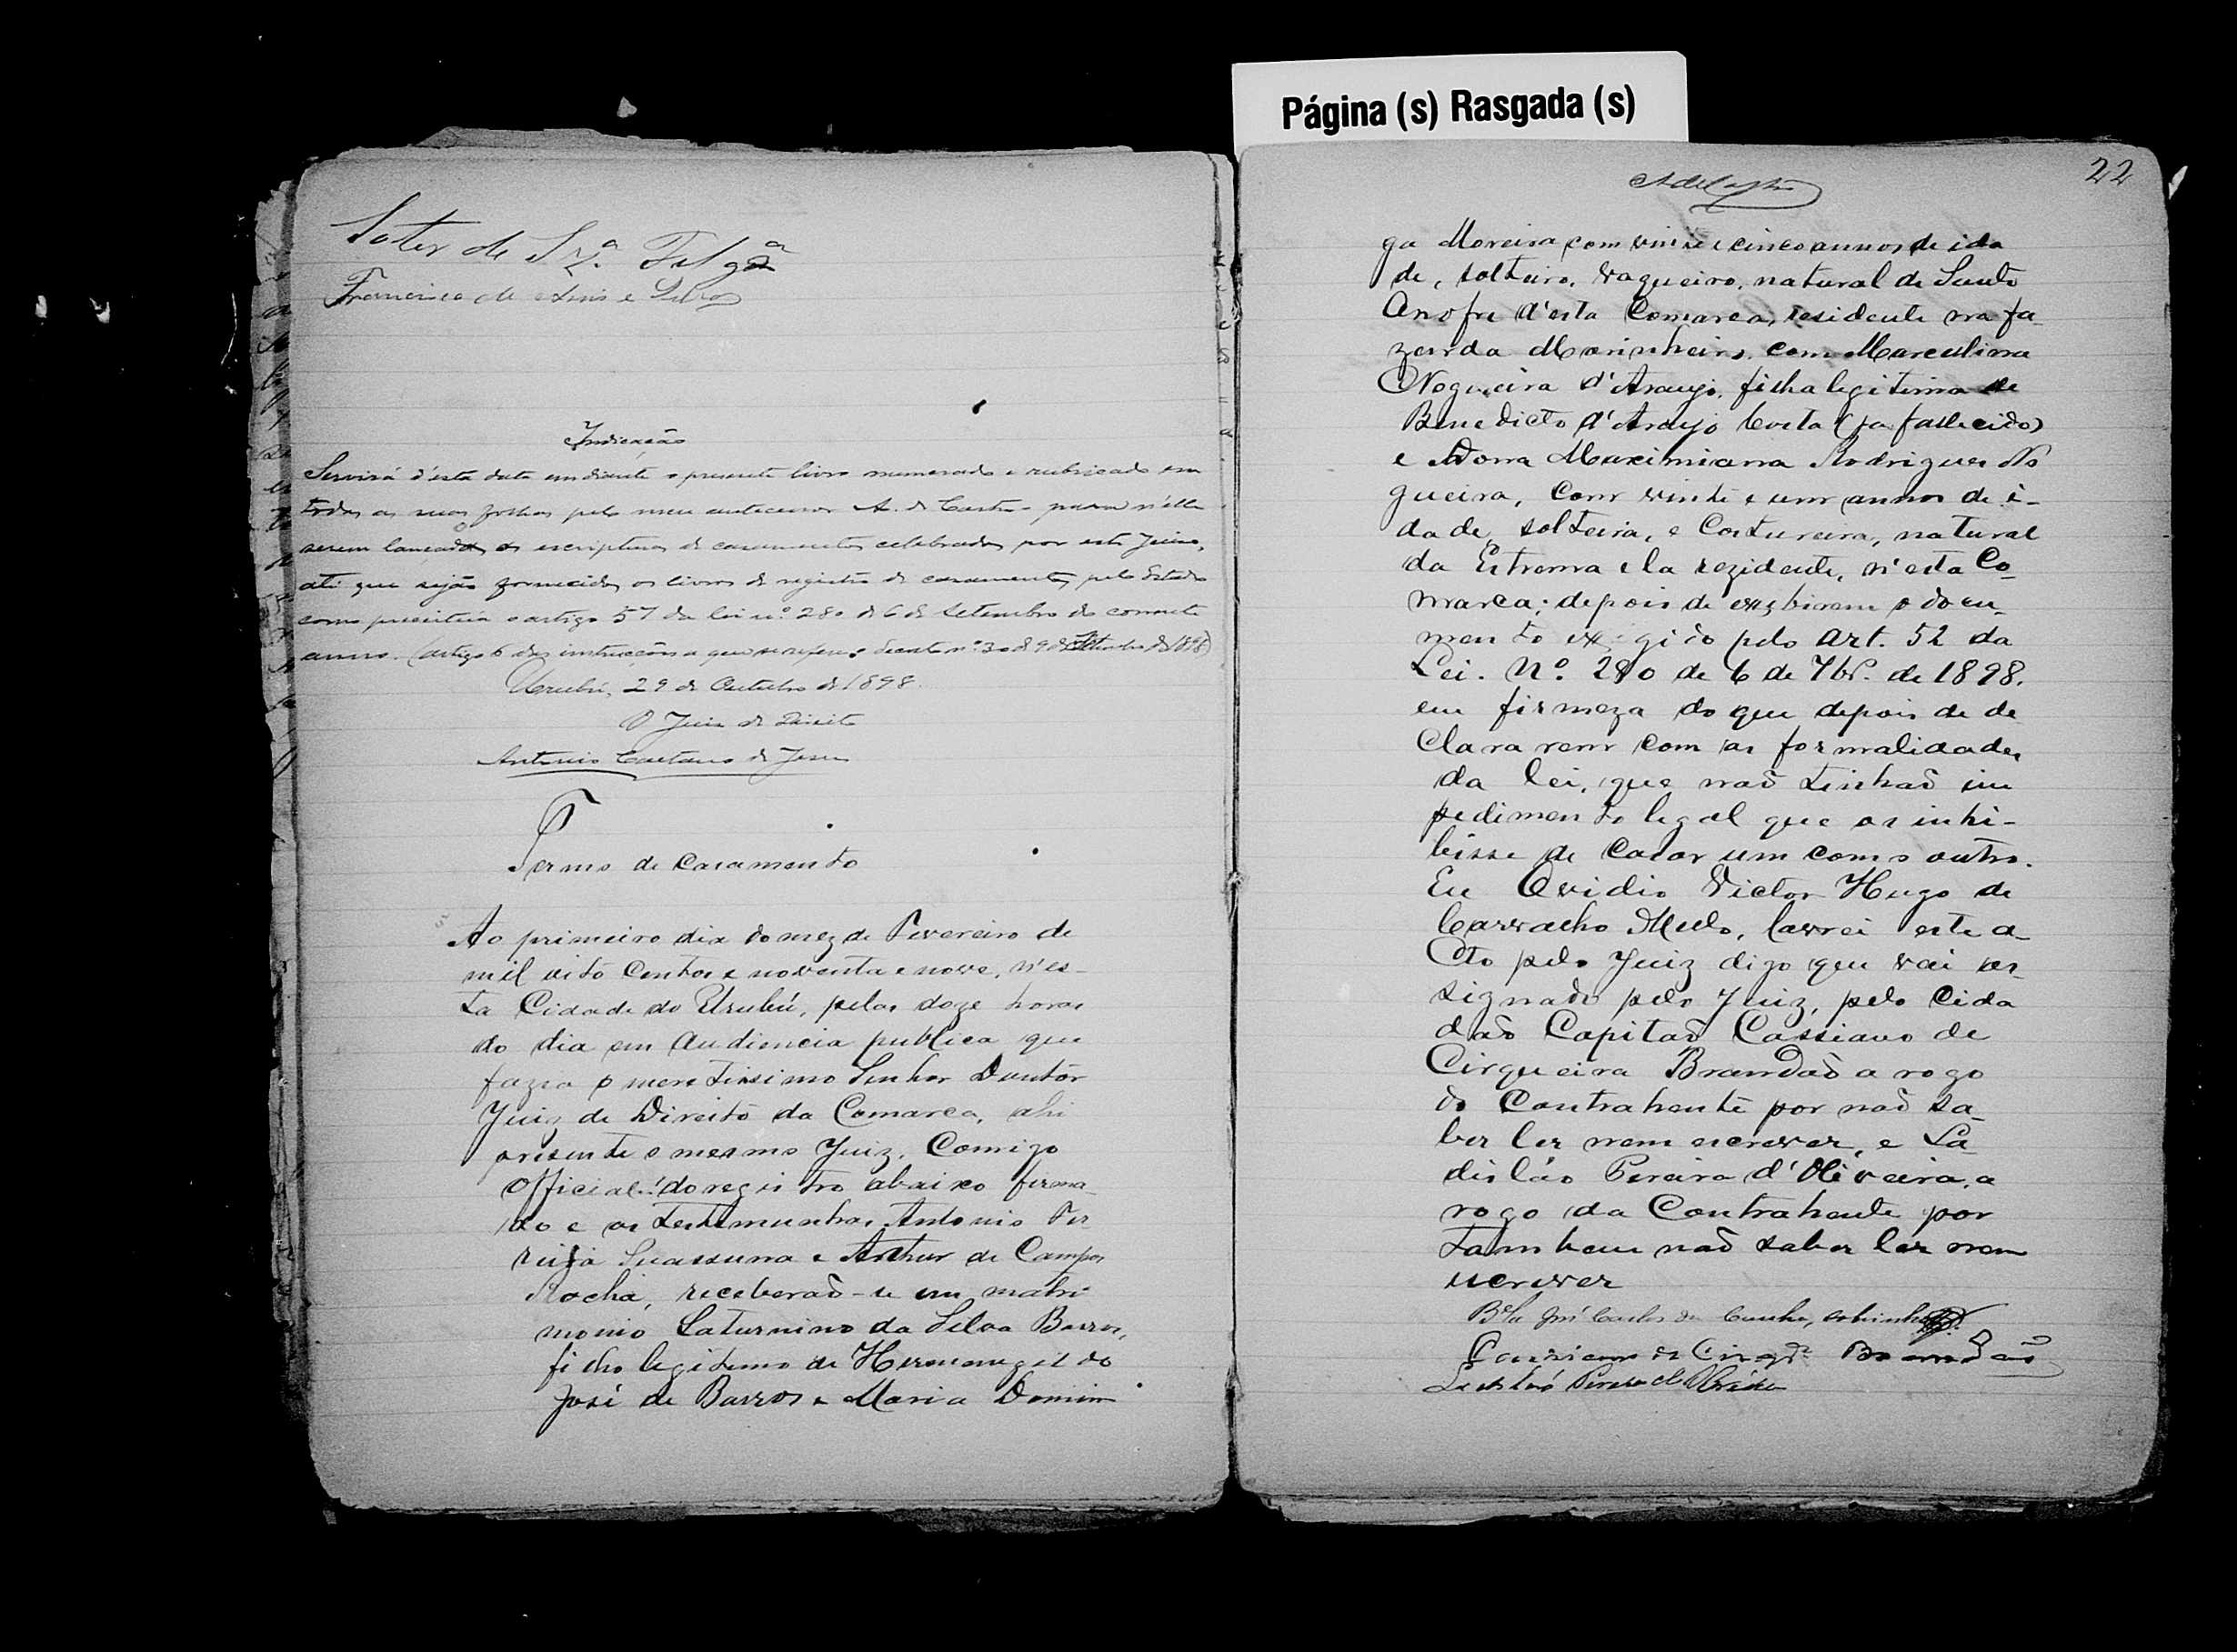 Soter de Sz.ª Folgª
Francisco de Assis e Silva
Indicação
Servirá d'esta data em diante o presente livro numerado e rubricado em
todas as suas folhas pelo meu antecessor A. de Castro para n'elle
serem lançadas as escripturas de casamentos celebrados por este Juizo,
até que sejão fornecidos os livros de registro de casamentos, pelo Estado
como preceitúa o artigo 57 da lei nº. 280 de 6 de Setembro do corrente
anno. (artigo 6 das instrucções a que se refere o decreto nº. 30 de 9 de Setembro de 1898)
Urubú, 29 de Outubro de 1898.
O Juiz de Direito
Antonio Caetano de Jesus
Termo de Casamento
Ao primeiro dia do mez de Fevereiro de
mil oito centos e noventa e nove, n'es-
ta Cidade do Urubú, pelas doze horas
do dia em Audiencia publica que
fazia o meretissimo Senhor Doutôr
Juiz de Direito da Comarca, ahi
presente o mesmo Juiz, Comigo
Official do registro abaixo firma-
do e as testemunhas Antonio Per
reira Suassuna e Arthur de Campos
Rocha, receberaõ-se em matri
monio Saturnino da Silva Barros,
filho legitimo de Hermenegildo
José de Barros e Maria Domin
Página (s) Rasgada (s)
22
A de Castro
ga Moreira com vinte e cinco annos de ida
de, solteiro, vaqueiro, natural de Santo
Onofre d'esta Comarca, residente na fa-
zenda Marinheiro, com Marculina
Nogueira d'Araujo, filha legitima de
Benedicto d'Araujo Costa (ja fallecido)
e Dona Maximiana Rodrigues No
gueira, com vinte e um annos de i-
dade, solteira, e Costureira, natural
da Estrema e la rezidente, n'esta Co-
marca; depois de exhibirem o docu-
mento exigido pelo art. 52 da
Lei. Nº. 280 de 6 de 7br. de 1898.
em firmeza do que depois de de
clararem com as formalidades
da lei, que naõ tinhaõ im
pedimento legal que os inhi-
bisse de casar um com o outro.
Eu Ovidio Victor Hugo de
Carvalho Mello, lavrei este a-
cto pelo Juiz digo que vai as-
signado pelo Juiz, pelo Cida
daõ Capitaõ Cassiano de
Cirqueira Brandaõ a rogo
do Contrahente por naõ sa-
ber ler nem escrever, e La
disláo Pereira d'Oliveira, a
rogo da Contrahente por
tambem naõ saber ler nem
escrever
Bel. José Carlos da Cunha
Cassiano de Cirqrª Brandaõ
Ladisláo Pereira de Oliveira